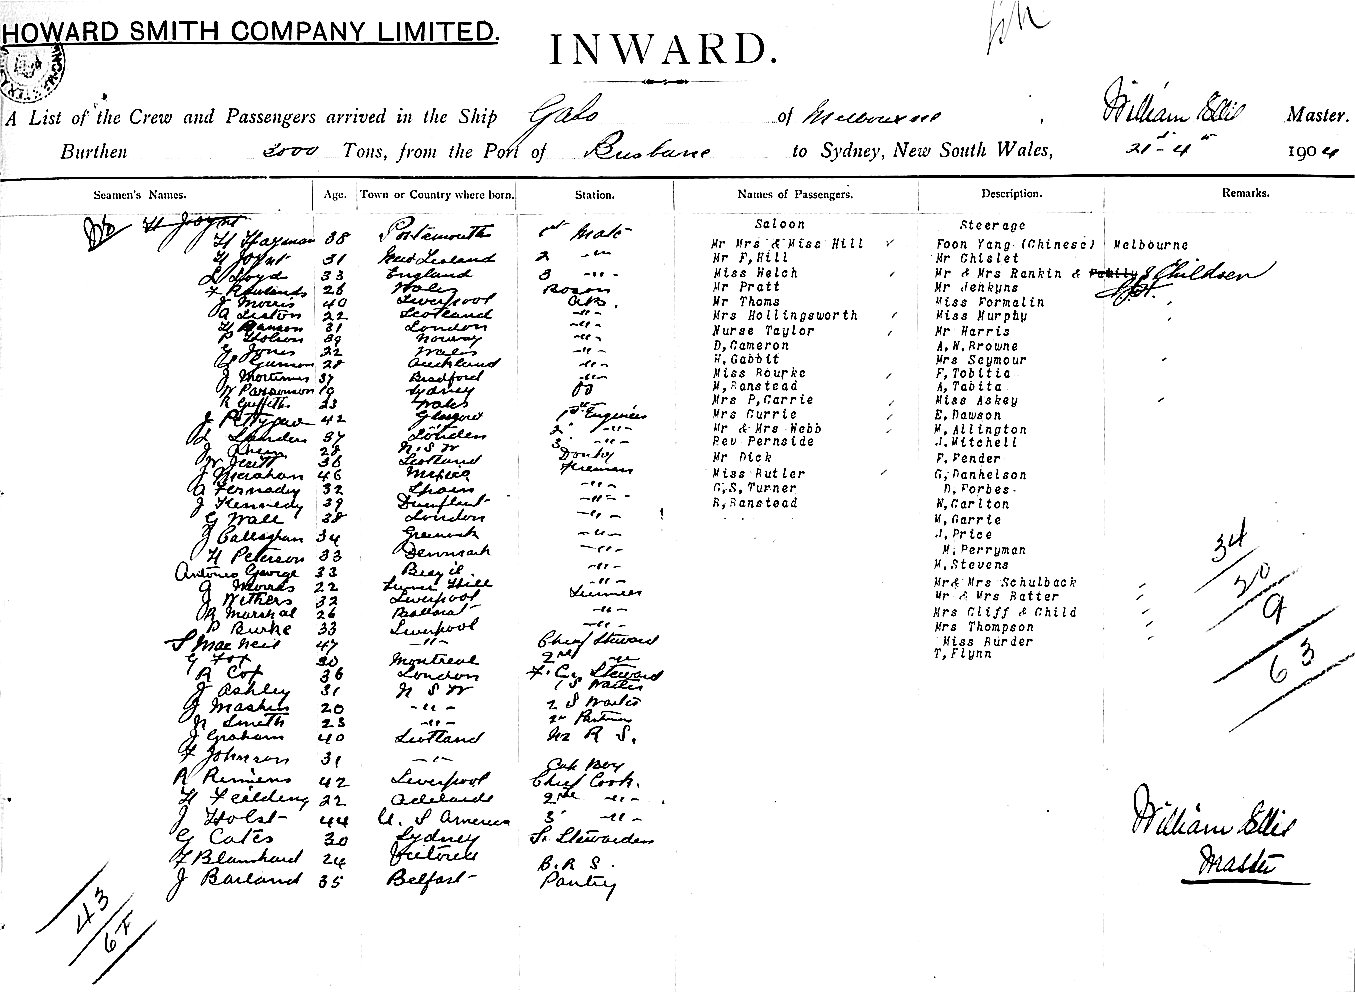 HOWARD SMITH COMPANY LIMITED.
INWARD.
A List of the Crew and Passengers arrived in the Ship Gabo of Melbourne, William Ellis Master.
Burthen 2000 Tons, from the Port of Brisbane to Sydney, New South Wales, 21st-4th 1904
Seamen's Names. Age. Town or Country where born. Station. Names of Passengers. Description. Remarks.
H Joynt
H Hayman 38 Portsmouth 1st Mate
H Joynt 31 New Zealand 2 -"-
L Lloyd 33 England 3 -"-
F Rowlands 28 Wales Bosun
J Morris 40 Liverpool AB.
A Liston 22 Scotland -"-
H Hanson 31 London -"-
P Wolson 39 Norway -"-
G Jones 22 Wales -"-
28 Auckland -"-
J Mortimer 37 Bradford -"-
W Parsonson 19 Sydney OS
R Griffith 23 Wales
J Pettigrew 42 Glasgow 1st Engineer
L Landers 37 London 2 -"-
J 28 N.S.W 3 -"-
W Scott 36 Scotland Donkey
J Meeahan 46 Fireman
A Fernady 32 Spain -"-
J Kennedy 39 -"-
G Wall 38 London -"-
J Callaghan 34 Greenock -"-
H Peterson 33 Denmark -"-
Antonio George 33 Brazil -"-
A Morris 22 Hill -"-
J Withers 32 Liverpool Trimmer
R Marshal 26 Ballarat -"-
P Burke 33 Liverpool
S MacNeil 47 -"- Chief Steward
G Fox 30 Montreal 2nd -"-
R Cox 36 London F. C. Steward
J Ashley 31 N S W 1 S Waiter
J Maskin 20 -"- 2 S Waiter
N Smith 23 -"- 2nd Pantry
J Graham 40 Scotland R S.
F Johnson 31 -"- Cab Boy
R Rimiens 42 Liverpool Chief Cook.
H Feilding 22 Adelaide 2nd -"-
J Holst 44 U. S America 3 -"-
G Cates 30 Sydney S. Stewardess
F Blanchard 24 Victoria B. R S.
J Barland 35 Belfast Pantry
43
67
Saloon
Mr Mrs & Miss Hill
Mr F,Hill
Miss Welch
Mr Pratt
Mr Thoms
Mrs Hollingsworth
Nurse Taylor
D,Cameron
H,Gabbit
Miss Rourke
M,Ranstead
Mrs P,Carrie
Mrs Currie
Mr & Mrs Webb
Rev Pernside
Mr Dick
Miss Butler
G,S,Turner
R,Ranstead
Steerage
Foon Yang (Chinese) Melbourne
Mr Chislet
Mr & Mrs Rankin & Family 3 Children
Mr Jenkyns
Miss Formalin
Miss Murphy
Mr Harris
A,W,Browne
Mrs Seymour
F,Tobitia
A,Tabita
Miss Askey
E,Dawson
M,Allington
J,Mitchell
F,Fender
G,Danhelson
D,Forbes
N,Carlton
M,Garrie
J,Price
M,Perryman
M,Stevens
Mr& Mrs Schulback
Mr & Mrs Ratter
Mrs Cliff & Child
Mrs Thompson
Miss Burder
T,Flynn
34
20
9
63
William Ellis
Master